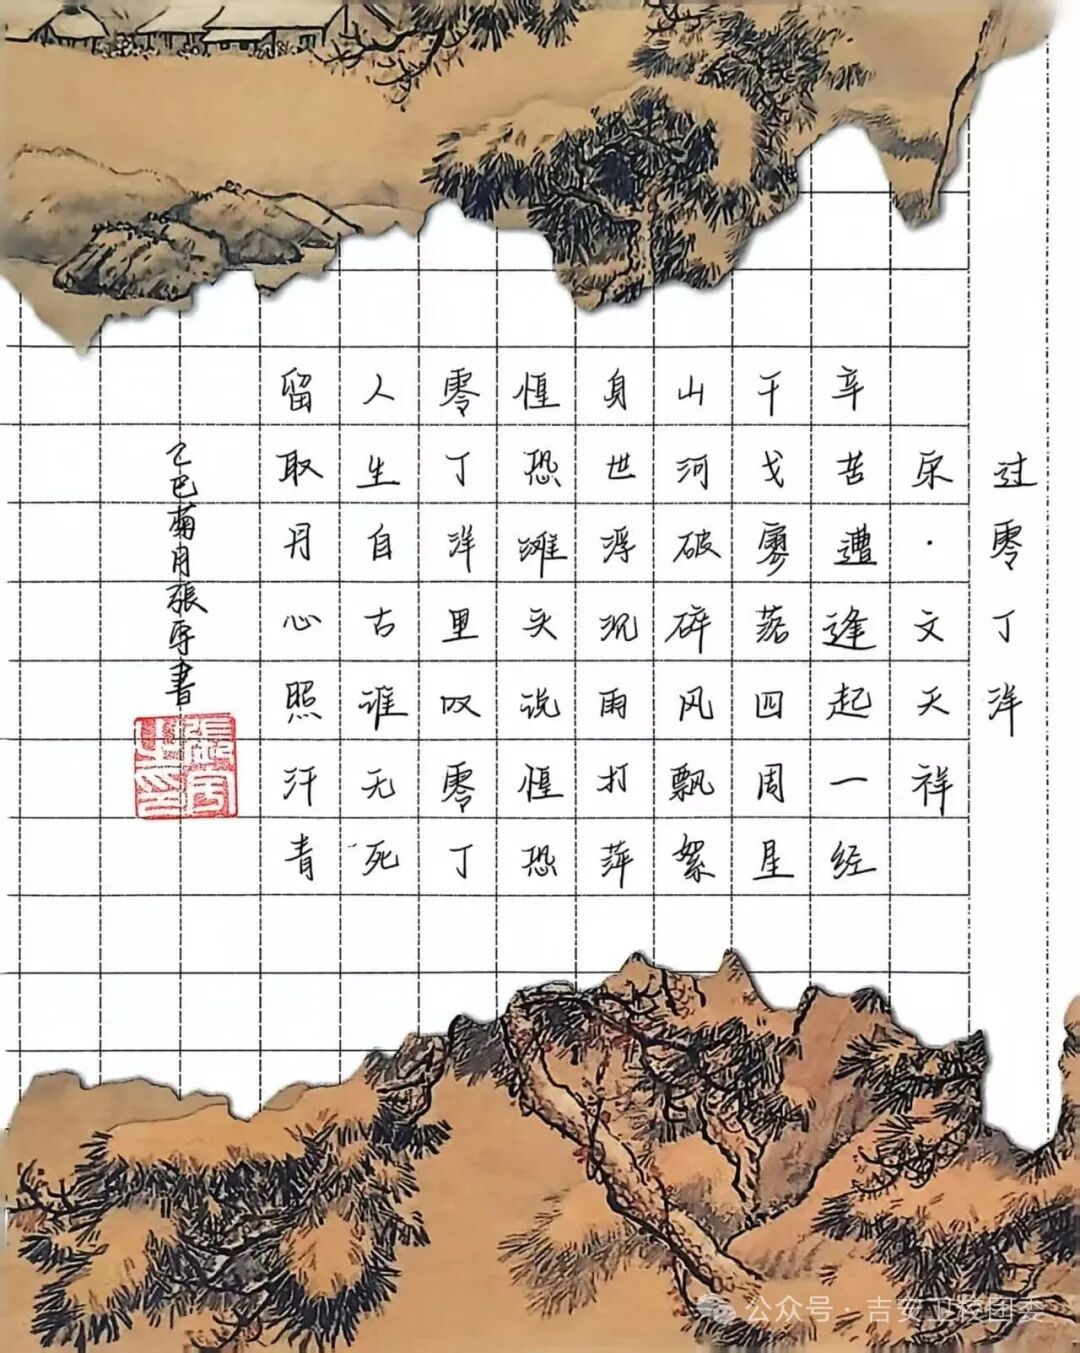 过零丁洋
宋·文天祥
辛苦遭逢起一经
干戈廖落四周星
山河破碎风飘絮
身世浮沉雨打萍
惶恐滩头说惶恐
零丁洋里叹零丁
人生自古谁无死
留取丹心照汗青
乙巳菊月張宇書
公众号·吉安卫校团委